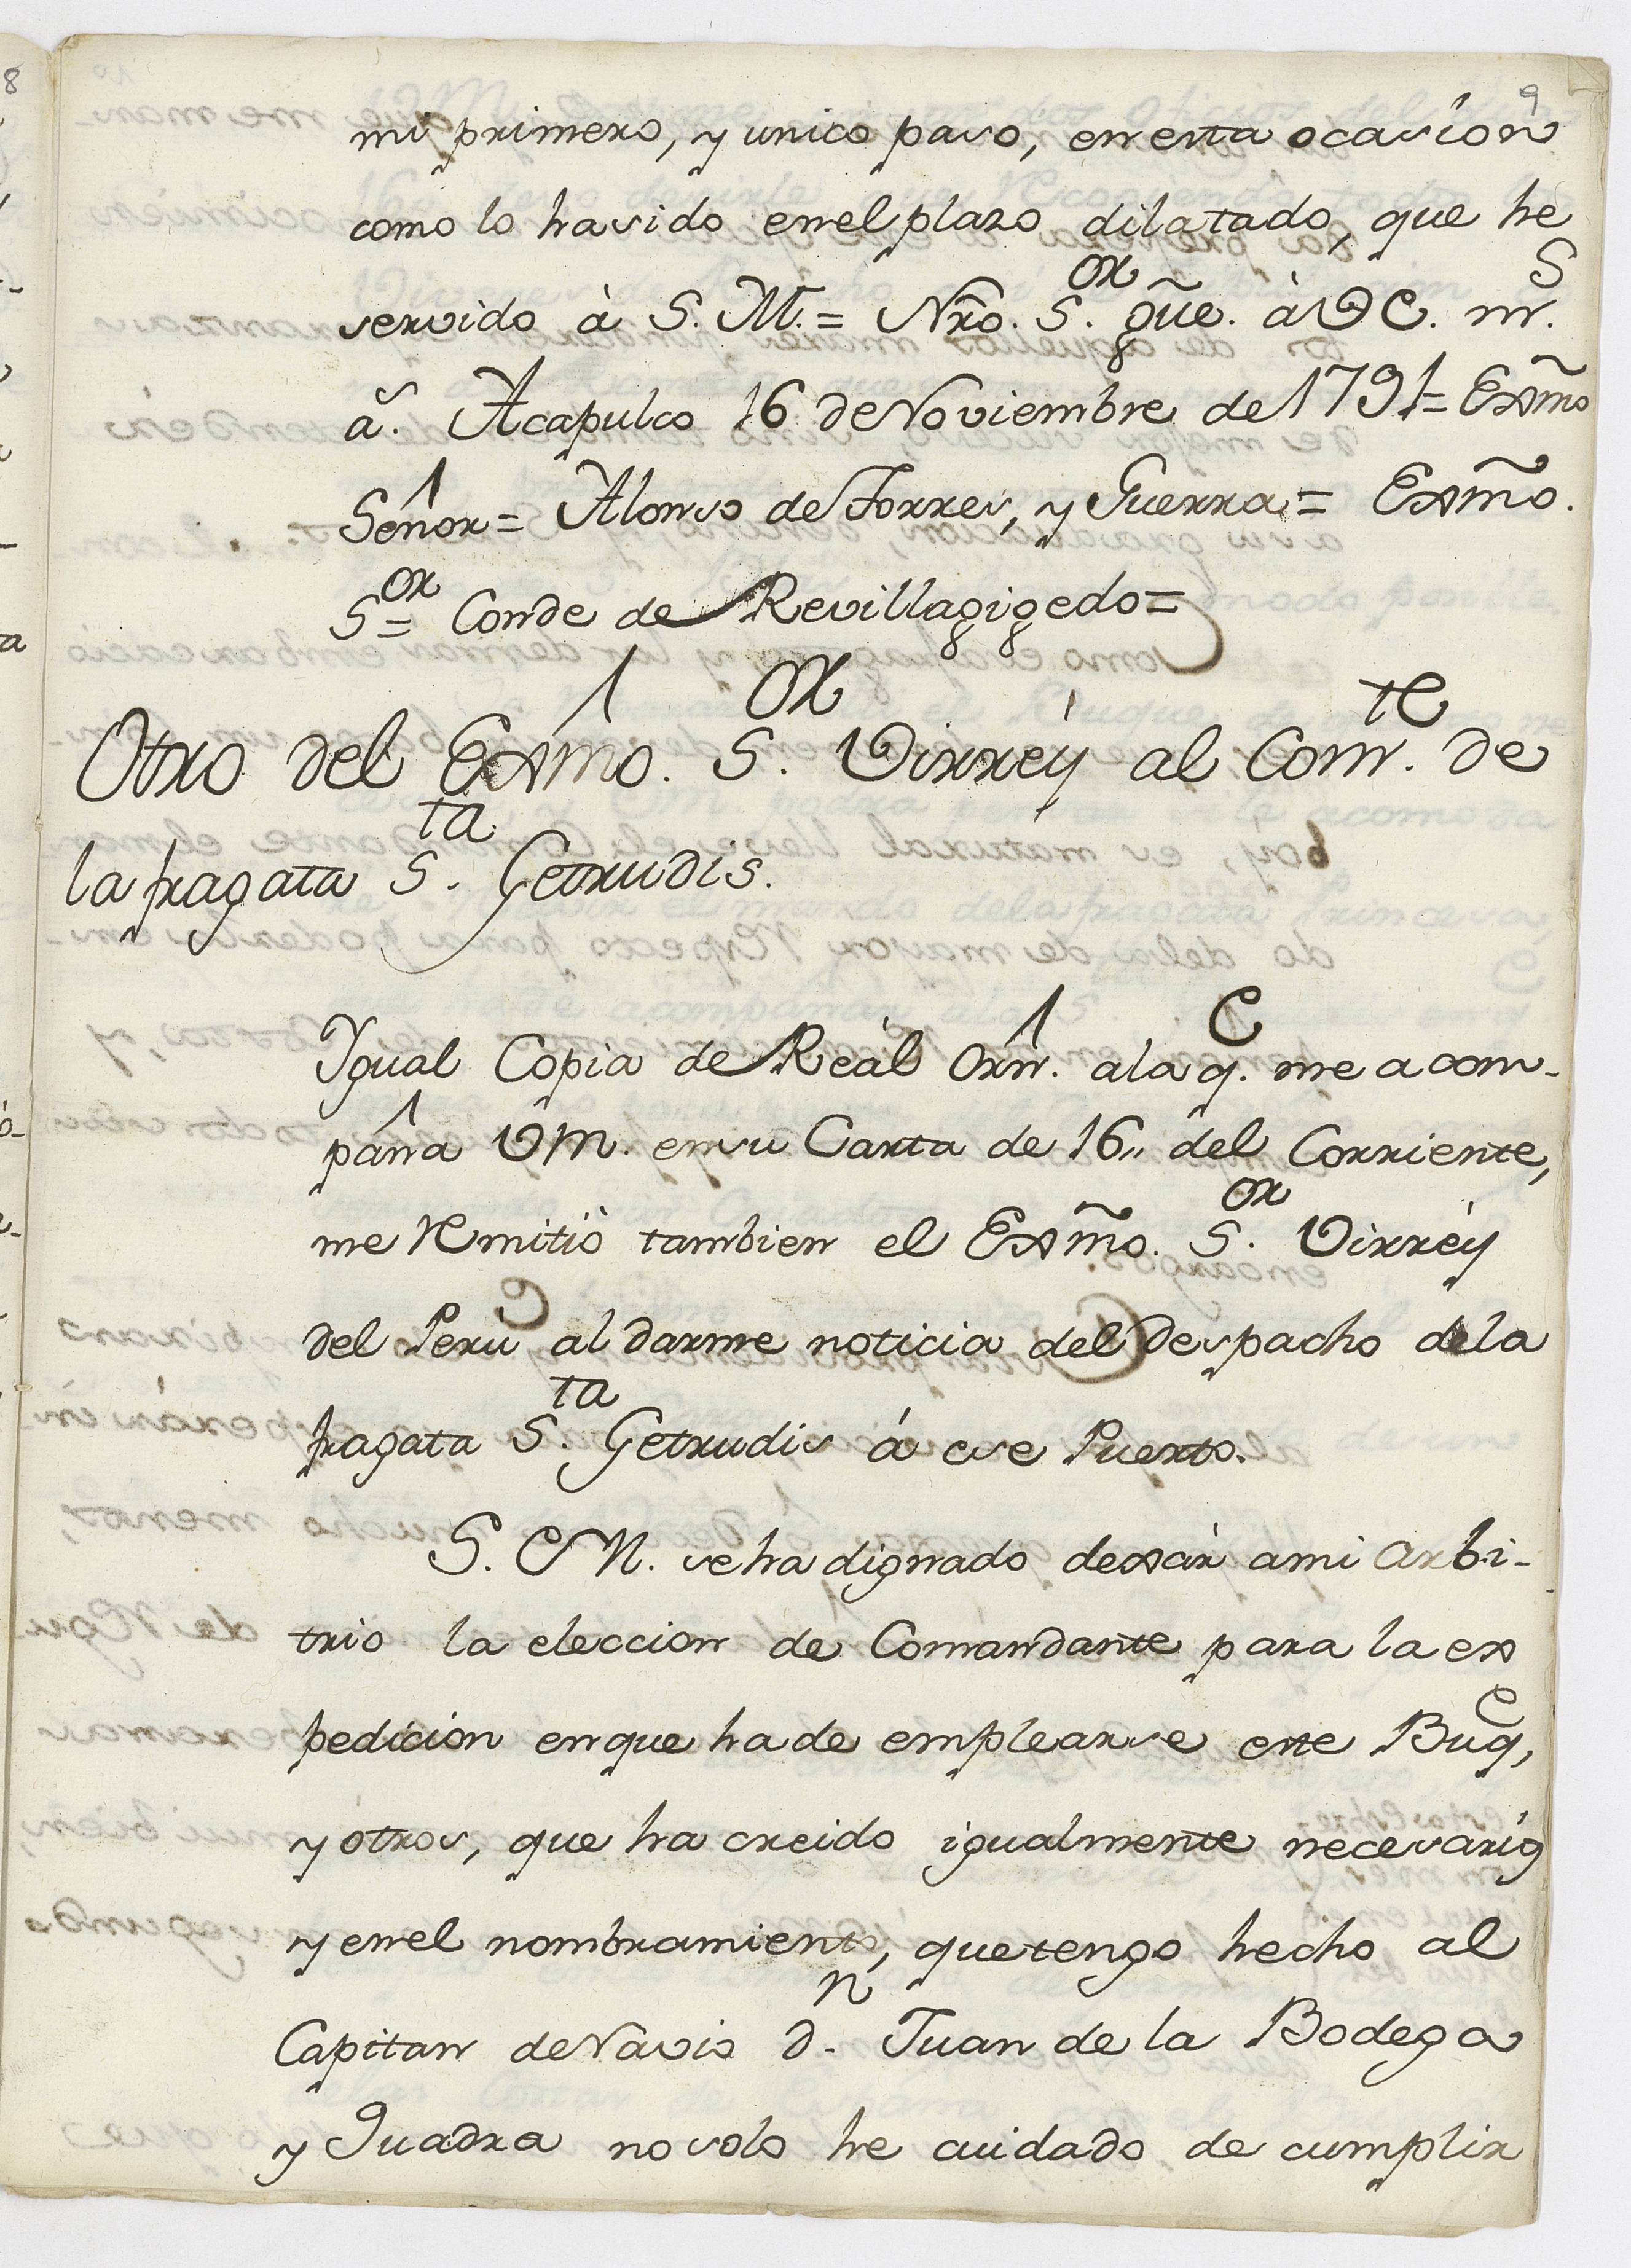 9
mi primero, y unico paso, en esta ocasion
como lo ha sido en el plazo dilatado, que he
servido à S. M. = Nrõ. S.or gũe. à VE. m.s
a.s Acapulco 16 de Noviembre de 1791 = Exmõ
Señor = Alonso de Torres, y Guerra = Exmõ.
S.or Conde de Revillagigedo =
Otro del Exmo. S.or Virrey al Com.te de
la fragata S.ta Getrudis.
Ygual Copia de Reàl Orñ. a la q.e me acom-
paña VM. en su Carta de 16,, del Corriente,
me Remitiò tambien el Exmõ. S.or Virrèy
del Perù al darme noticia del Despacho de la
fragata S.ta Getrudis á ese Puerto.
S. M. se ha dignado dexàr a mi arbi-
trio la eleccion de Comandante para la ex
pedicion en que ha de emplearse este Buq.e,
y otros, que ha creido igualmente necesarios
y en el nombramiento, que tengo hecho al
Capitan de Navio D.n Juan de la Bodega
y Quadra no solo he cuidado de cumplir